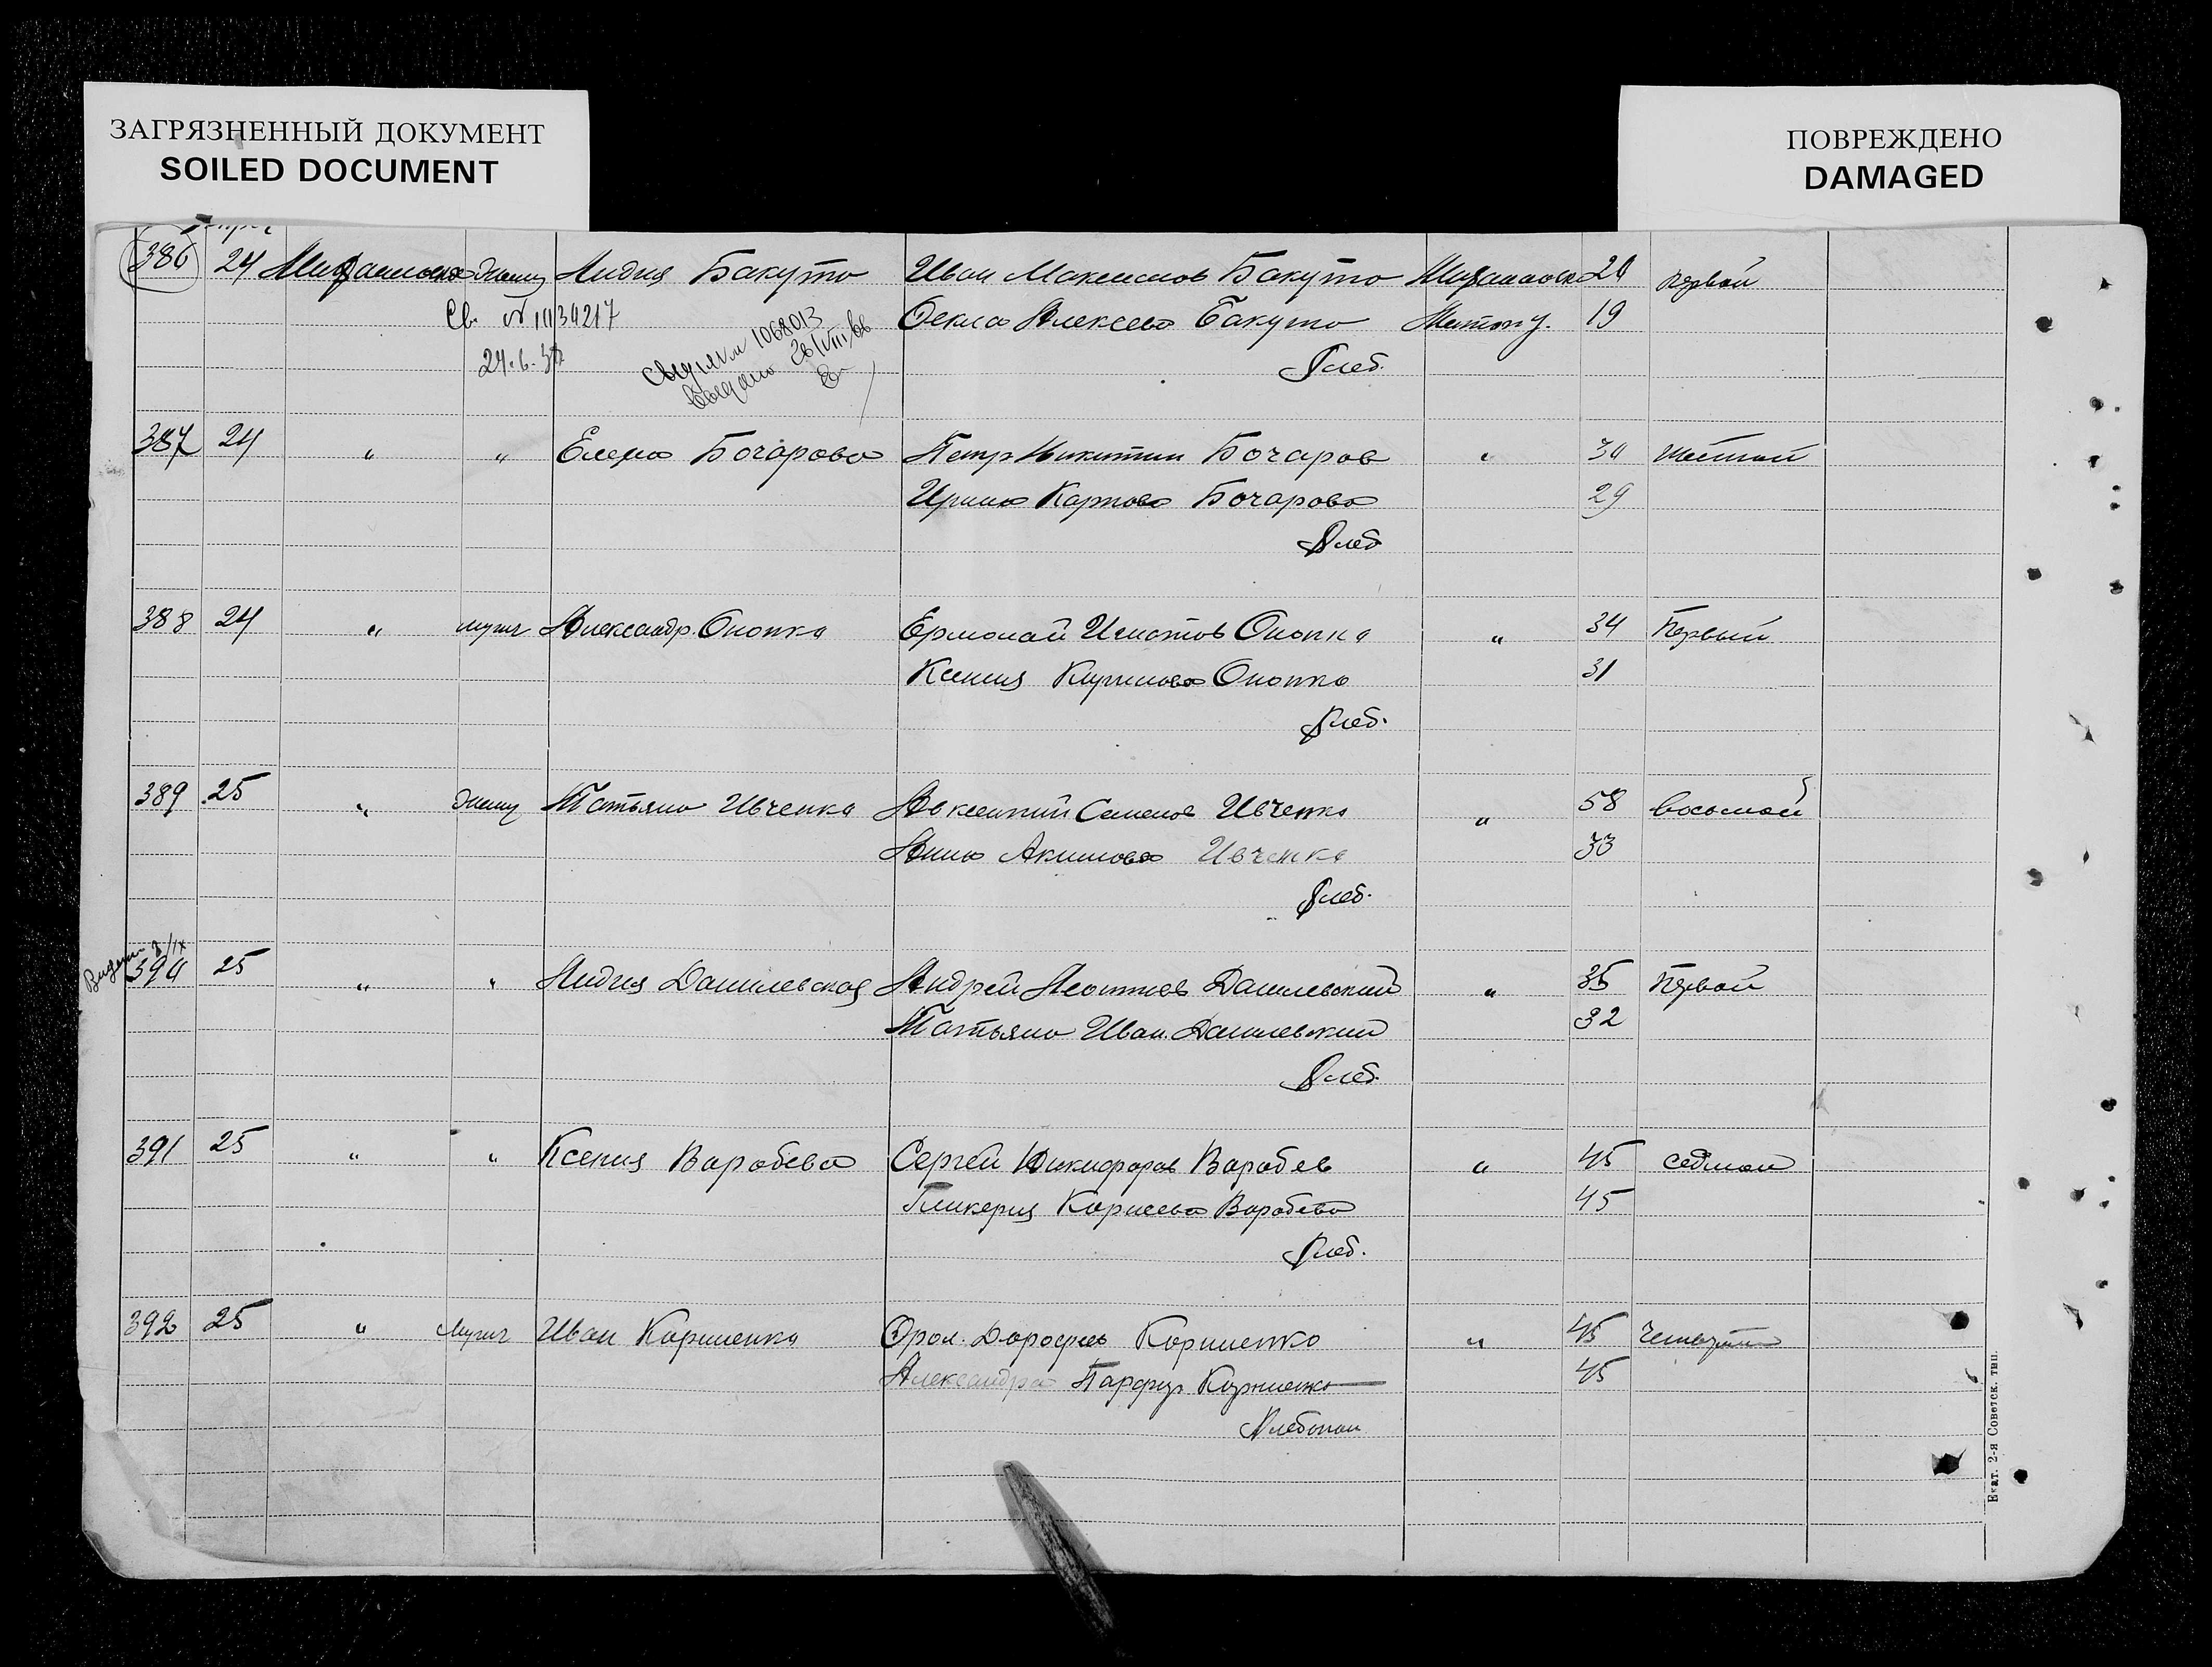 ЗАГРЯЗНЕННЫЙ ДОКУМЕНТ
SOILED DOCUMENT
ПОВРЕЖДЕНО
DAMAGED
386 24 женщ Лидия Бакуто Иван Максимов Бакуто 20 первой
Св. № 1034217 Фекла Алексеева Бакуто 19
24.6.38 Хлеб.
1068013
Выдано 26/VIII/66
387 24 " " Елена Бочарова Петр Никитин Бочаров " 30 шестой
Ирина Карпова Бочарова 29
Хлеб
388 24 " мужч Александр Онопка Ермолай Игнатов Онопка " 34 Первый
Ксения Кирилова Онопко 31
Хлеб.
389 25 " женщ Татьяна Ивченко Авксентий Семенов Ивченко " 58 восьмой
Анна Акимова Ивченко 33
Хлеб.
3/IX
390 25 " " Лидия Данилевская Андрей Леонтиев Данилевский " 35 Первой
Татьяна Иван. Данилевский 32
Хлеб.
391 25 " " Ксения Воробева Сергей Никифоров Воробев " 45 седмой
Гликерия Корнеева Воробева 45
Хлеб.
392 25 " Мужч Иван Корниенко Фрол. Дорофеев Корниенко " 45
Александра Парфир Корниенко 45
Хлебопаш
Екат. 2-я Советск. тип.